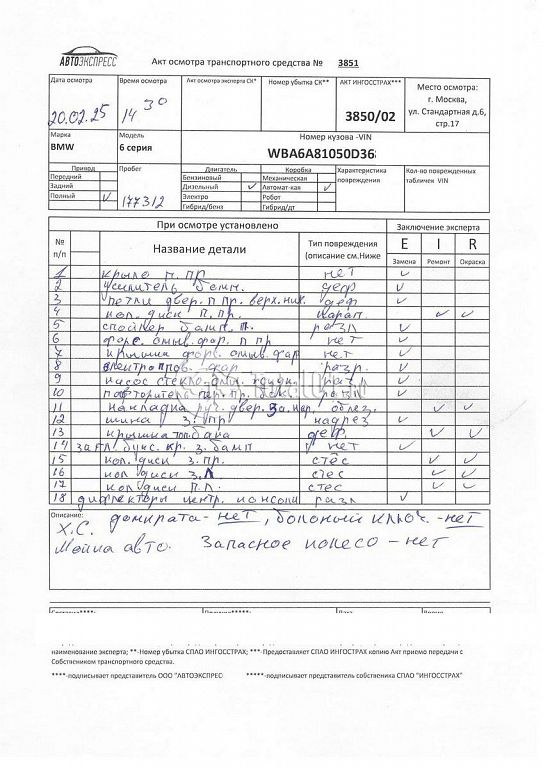 АВТОЭКСПРЕСС
Акт осмотра транспортного средства № 3851
Дата осмотра Время осмотра Акт осмотра эксперта СК* Номер убытка СК** АКТ ИНГОССТРАХ*** Место осмотра:
20.02.25 14 30 3850/02 г. Москва,
ул. Стандартная д.6,
стр.17
Марка Модель Номер кузова -VIN
BMW 6 серия WBA6A81050D36
Привод Пробег Двигатель Коробка Характеристика повреждения Кол-во поврежденных табличек VIN
Передний Бензиновый Механическая
Задний Дизельный ✓ Автомат-кая ✓
Полный ✓ 177312 Электро Робот
Гибрид/бенз Гибрид/дт
При осмотре установлено Заключение эксперта
№ п/п Название детали Тип повреждения (описание см.Ниже E I R
Замена Ремонт Окраска
1 крыло п. пр нет ✓
2 усилитель бамп. деф ✓
3 петли двер. п пр. верх. ниж. деф ✓
4 кол. диск п. пр. царап. ✓ ✓
5 спойлер бамп. п. разл ✓
6 форс. омыв. фар. п пр нет ✓
7 крышка форс. омыв. фар нет ✓
8 фар разр. ✓
9 насос стекло разр. ✓
10 повторитель пер. пр. разл ✓
11 накладка руч. двер. ✓ ✓
12 шина з. пр надрез ✓
13 крышка топ. бака деф. ✓ ✓
14 загл. букс. кр. з. бамп нет ✓
15 кол. диск з. пр. стес ✓ ✓
16 кол диск з. л стес ✓ ✓
17 кол диск п. л. стес ✓ ✓
18 дифлекторы центр. консоли разл ✓
Описание: домкрата - нет, болоный ключ. - нет
Х.С.
Мойка авто. Запасное колесо - нет
наименование эксперта; **-Номер убытка СПАО ИНГОССТРАХ; ***-Предоставляет СПАО ИНГОСТРАХ копию Акт приемо передачи с
Собствеником транспортного средства.
****-подписывает представитель ООО "АВТОЭКСПРЕС *****-подписывает представитель собственика СПАО "ИНГОССТРАХ"